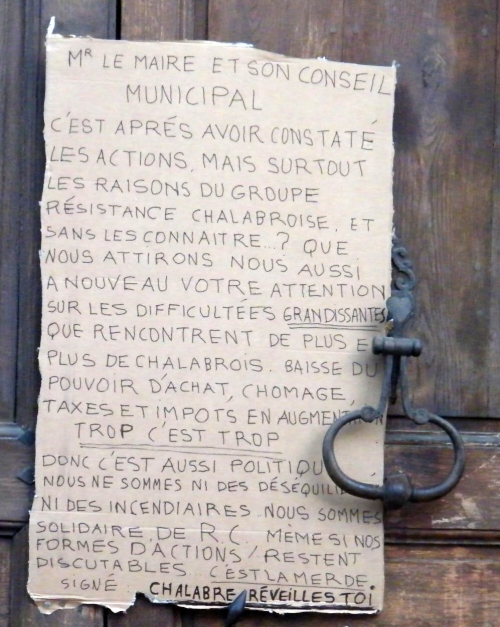 Mr LE MAIRE ET SON CONSEIL
MUNICIPAL
C'EST APRÉS AVOIR CONSTATÉ
LES ACTIONS, MAIS SURTOUT
LES RAISONS DU GROUPE
RÉSISTANCE CHALABROISE, ET
SANS LES CONNAITRE...? QUE
NOUS ATTIRONS NOUS AUSSI
A NOUVEAU VOTRE ATTENTION
SUR LES DIFFICULTÉES GRANDISSANTES
QUE RENCONTRENT DE PLUS E
PLUS DE CHALABROIS. BAISSE DU
POUVOIR D'ACHAT, CHOMAGE,
TAXES ET IMPOTS EN AUGMENTATION
TROP C'EST TROP
DONC C'EST AUSSI POLITIQU
NOUS NE SOMMES NI DES DÉSÉQUILI
NI DES INCENDIAIRES. NOUS SOMMES
SOLIDAIRE DE R.C. MÈME SI NOS
FORMES D'ACTIONS / RESTENT
DISCUTABLES. C'EST LA MERDE
SIGNÉ CHALABRE RÉVEILLES TOI